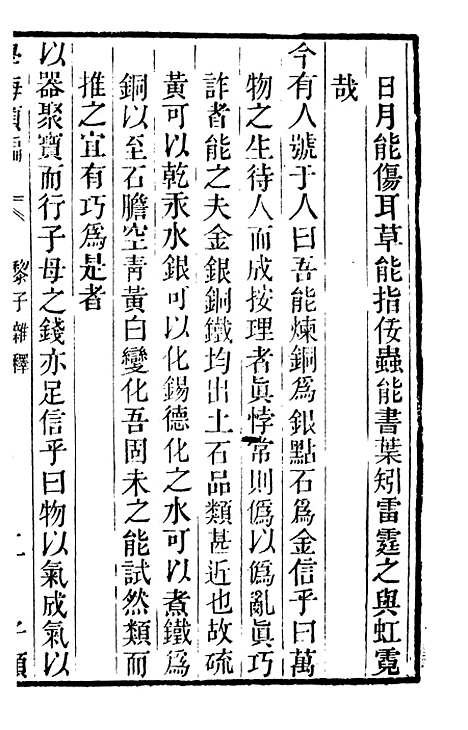 日月能傷耳草能指佞蟲能書葉矧雷霆之與虹霓
哉
今有人號于人曰吾能煉銅爲銀點石爲金信乎曰萬
物之生待人而成按理者眞悖常則僞以僞亂眞巧
詐者能之夫金銀銅鐵均出土石品類甚近也故硫
黃可以乾汞水銀可以化錫德化之水可以煮鐵爲
銅以至石膽空青黃白變化吾固未之能試然類而
推之宜有巧爲是者
以器聚寶而行子母之錢亦足信乎曰物以氣成氣以
海類編
黎子雜釋
子類